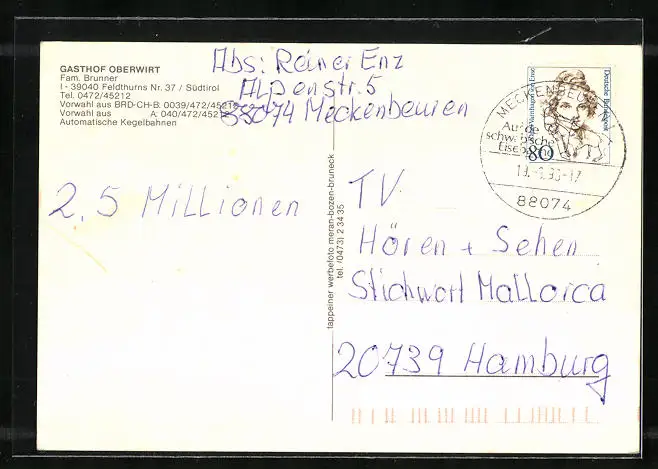 GASTHOF OBERWIRT
Fam. Brunner
I - 39040 Feldthurns Nr. 37 / Südtirol
Tel. 0472/45212
Vorwahl aus BRD-CH-B: 0039/472/45212
Vorwahl aus A: 040/472/45212
Automatische Kegelbahnen
Abs: Reiner Enz
Alpenstr. 5
88074 Meckenbeuren
2,5 Millionen
tappeiner werbefoto meran-bozen-bruneck
tel. (0473) 2 34 35
Deutsche Bundespost
80
MECKENBEUREN
Auf de
schwäbsche
Eisebahne
88074
TV
Hören + Sehen
Stichwort Mallorca
20739 Hamburg